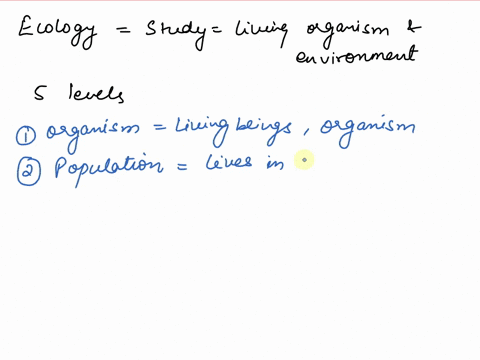 Ecology = Study = Living organism &
environment
5 levels
① organism = Living beings, organism
② Population = lives in